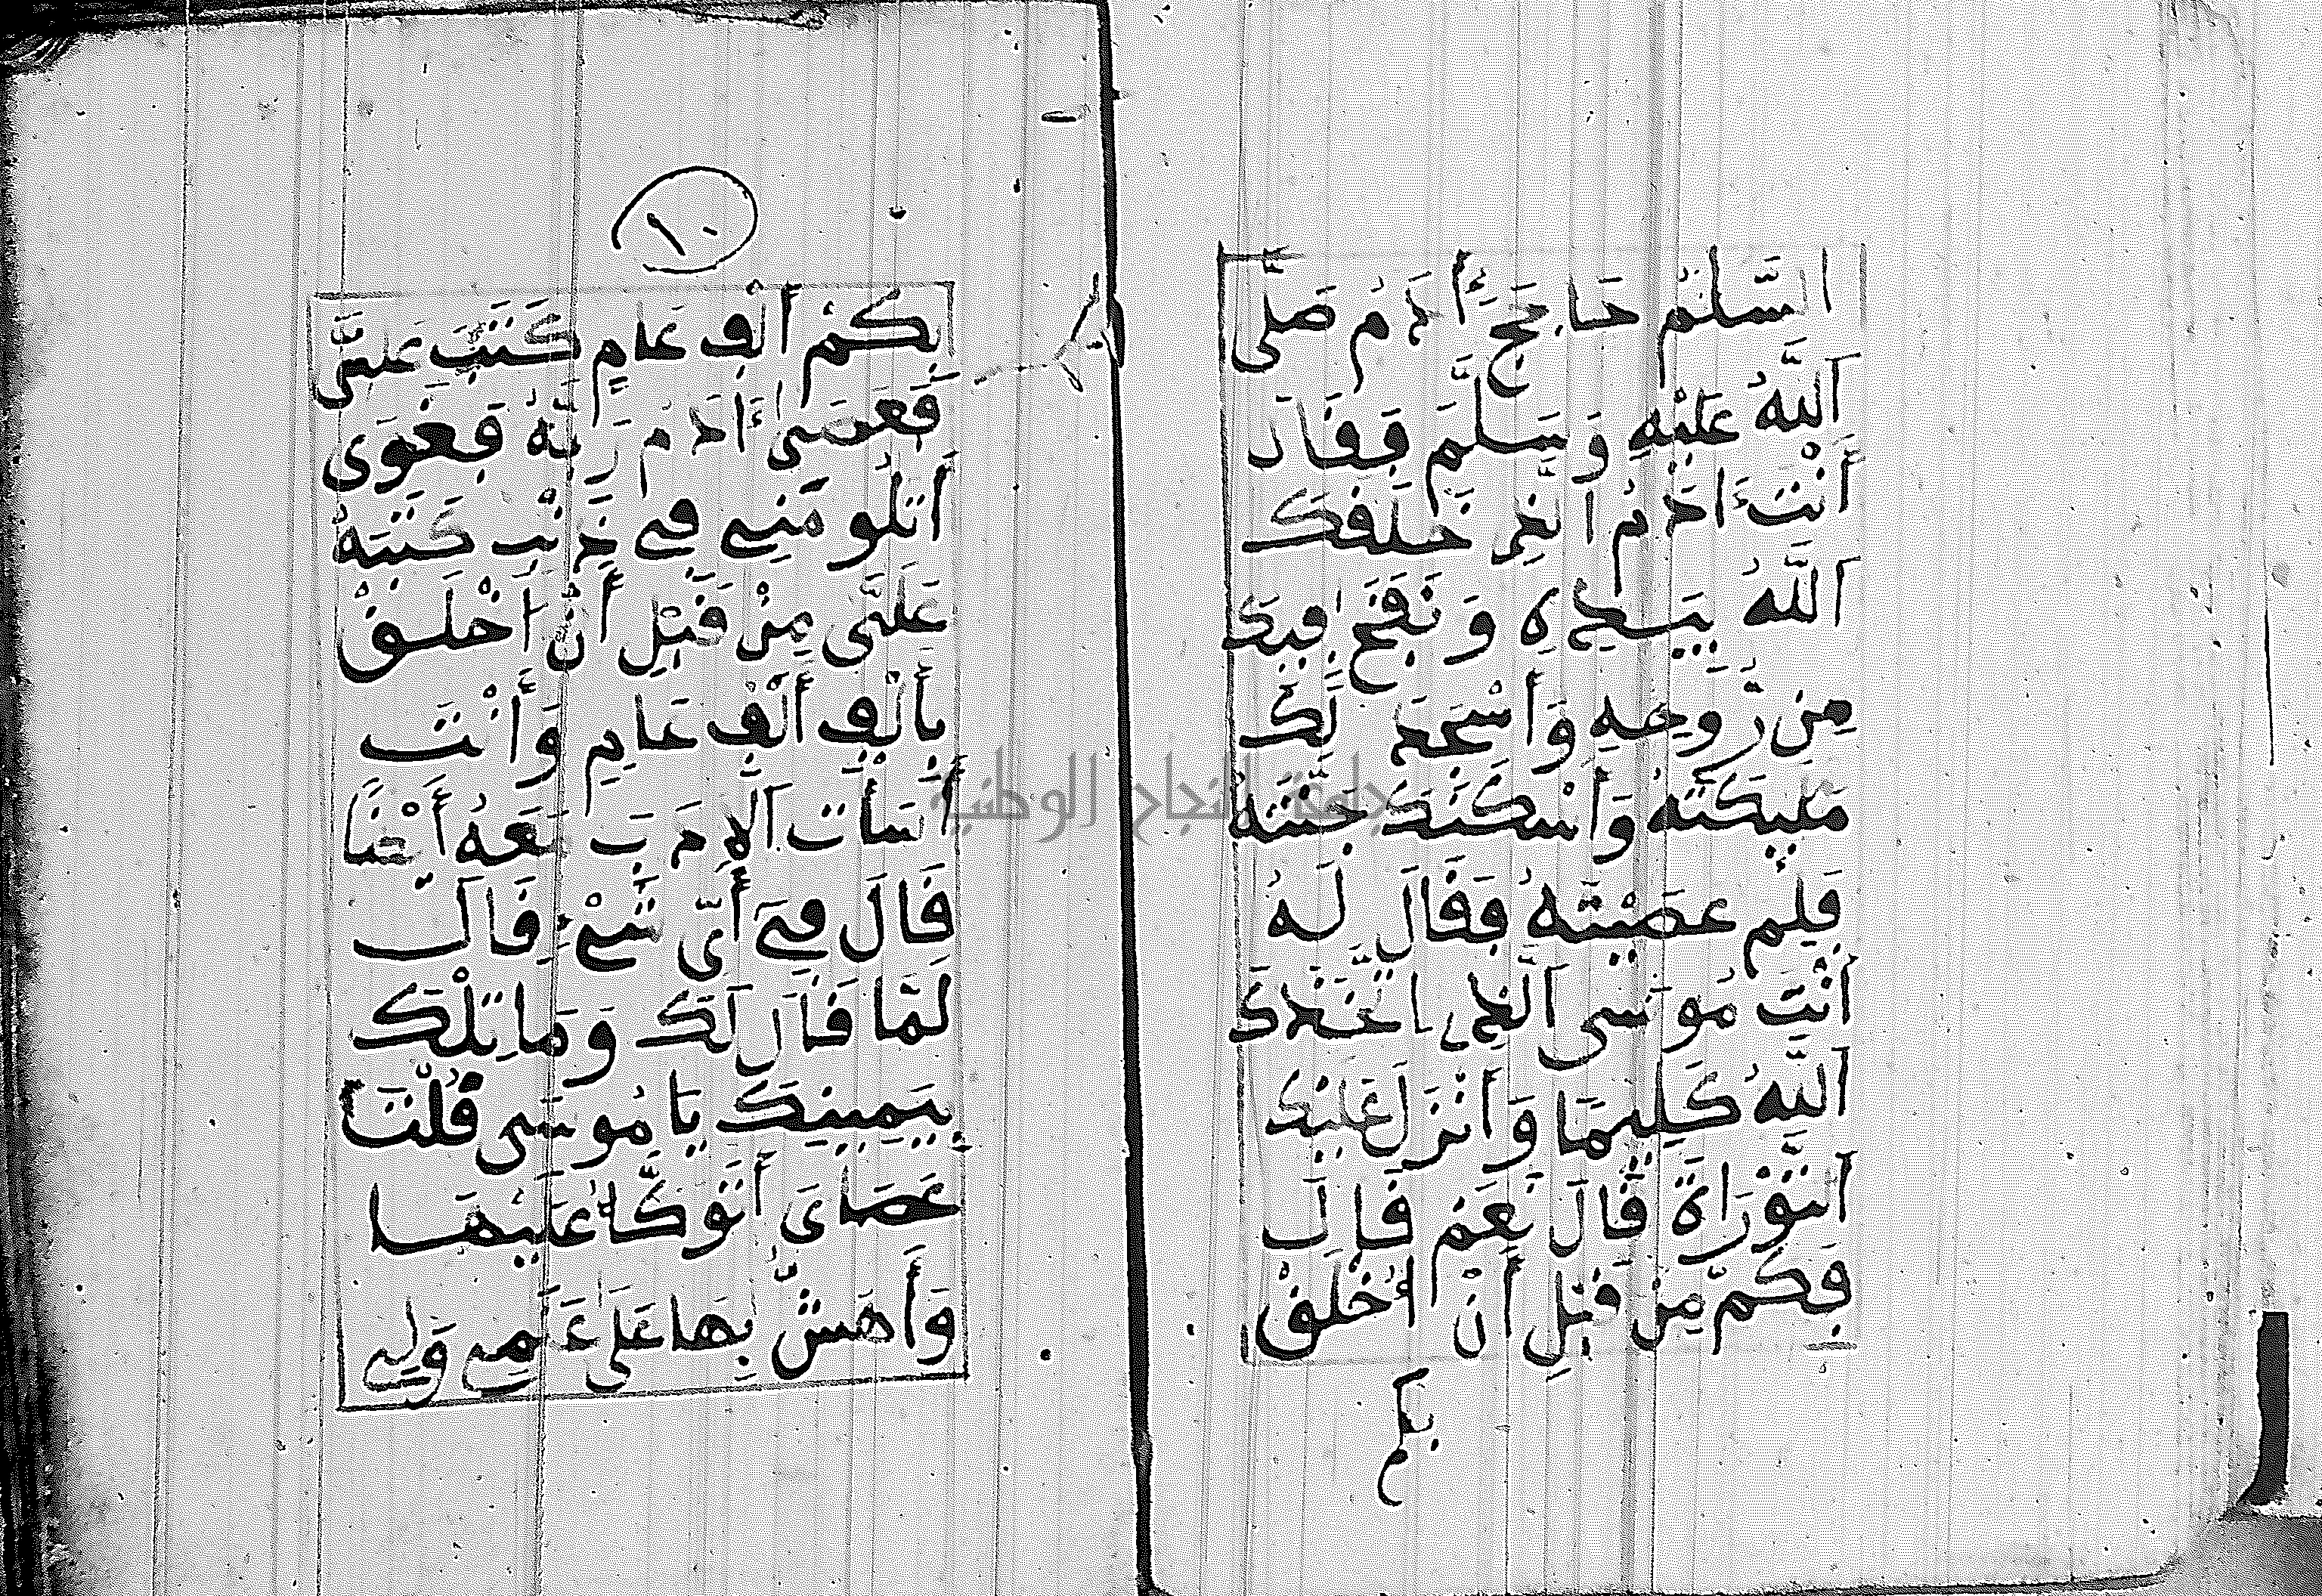 السَّلٰمُ حَاجَجَ ءَادَمَ صَلَّى
اَللَّهُ عَلَيْهِ وَسَلَّمَ فَقَالَ
أَنْتَ ءَادَمُ الذِي خَلَقَكَ
اَللَّهُ بِيَدِهِ وَنَفَخَ فِيكَ
مِن رُّوحِهِ وَأَسْجَدَ لَكَ
مَلَيِكَتَهُ وَأَسْكَنَكَ جَنَّتَهُ
فَلِمَ عَصَيْتَهُ فَقَالَ لَهُ
أَنْتَ مُوسَى اَلَّذِي اتَّخَذَكَ
اَللَّهُ كَلِيمًا وَأَنْزَلَ عَلَيْكَ
اَلتَّوْرَاةَ قَالَ نَعَمْ قَالَ
فَكَمْ مِّنْ قَبْلِ أَنْ اُخْلَقْ
بكم
١٠
بِكَمْ أَلْفِ عَامٍ كَتَبَ عَلَيَّ
فَعَصَىٰ ءَادَمُ رَبَّهُ فَغَوَى
أَتَلُومُنِي فِي ذَنْبٍ كَتَبَهُ
عَلَيَّ مِنْ قَبْلِ أَنْ اَخْلَقْ
بِأَلْفِ أَلْفِ عَامٍ وَأَنْتَ
أَسَأْتَ اَلْاِدَبَ مَعَهُ أَيْضًا
قَالَ فِي أَيِّ شَيْءٍ قَالَ
لَمَّا قَالَ لَكَ وَمَا تِلْكَ
بِيَمِينِكَ يَا مُوسَى قُلْتَ
عَصَايَ أَتَوَكَّأُ عَلَيْهَا
وَأَهُشُّ بِهَا عَلَىٰ غَنَمِي وَلِي
جامعة النجاح الوطنية